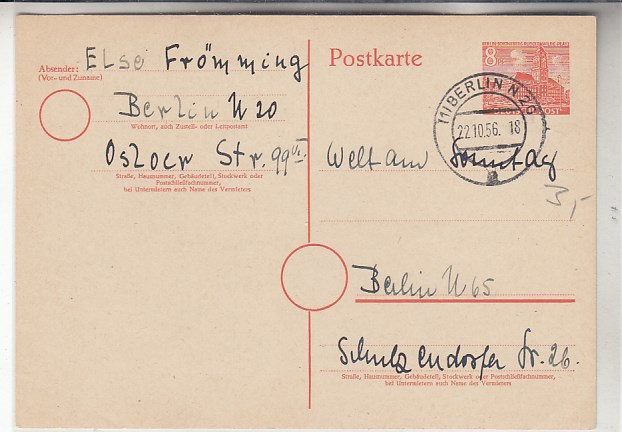 Absender:
(Vor- und Zuname)
Else Frömming
Berlin N 20
Wohnort, auch Zustell- oder Leitpostamt
Osloer Str. 99
Straße, Hausnummer, Gebäudeteil, Stockwerk oder
Postschließfachnummer,
bei Untermietern auch Name des Vermieters
Postkarte
8
POST
(1) BERLIN N 20
22.10.56. 18
a
Welt am Sonntag
3,-
Berlin N 65
Schulzendorfer Str. 26.
Straße, Hausnummer, Gebäudeteil, Stockwerk oder Postschließfachnummer,
bei Untermietern auch Name des Vermieters